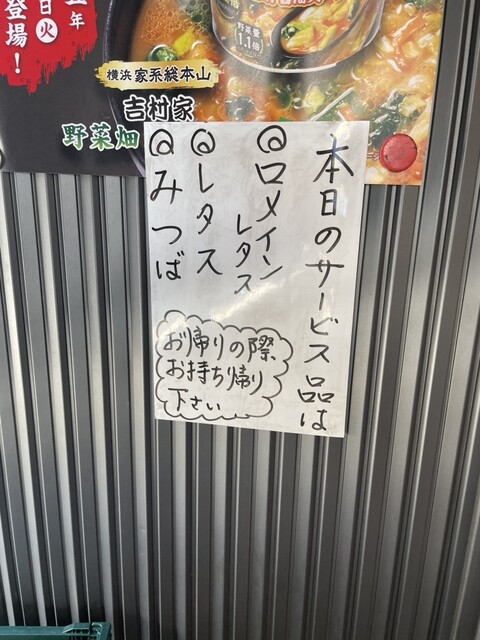 年
日㊋
登場！
野菜量
1.1倍
横浜 家系総本山
吉村家
野菜畑
本日のサービス品は
◎ロメイン
レタス
◎レタス
◎みつば
お帰りの際
お持ち帰り
下さい